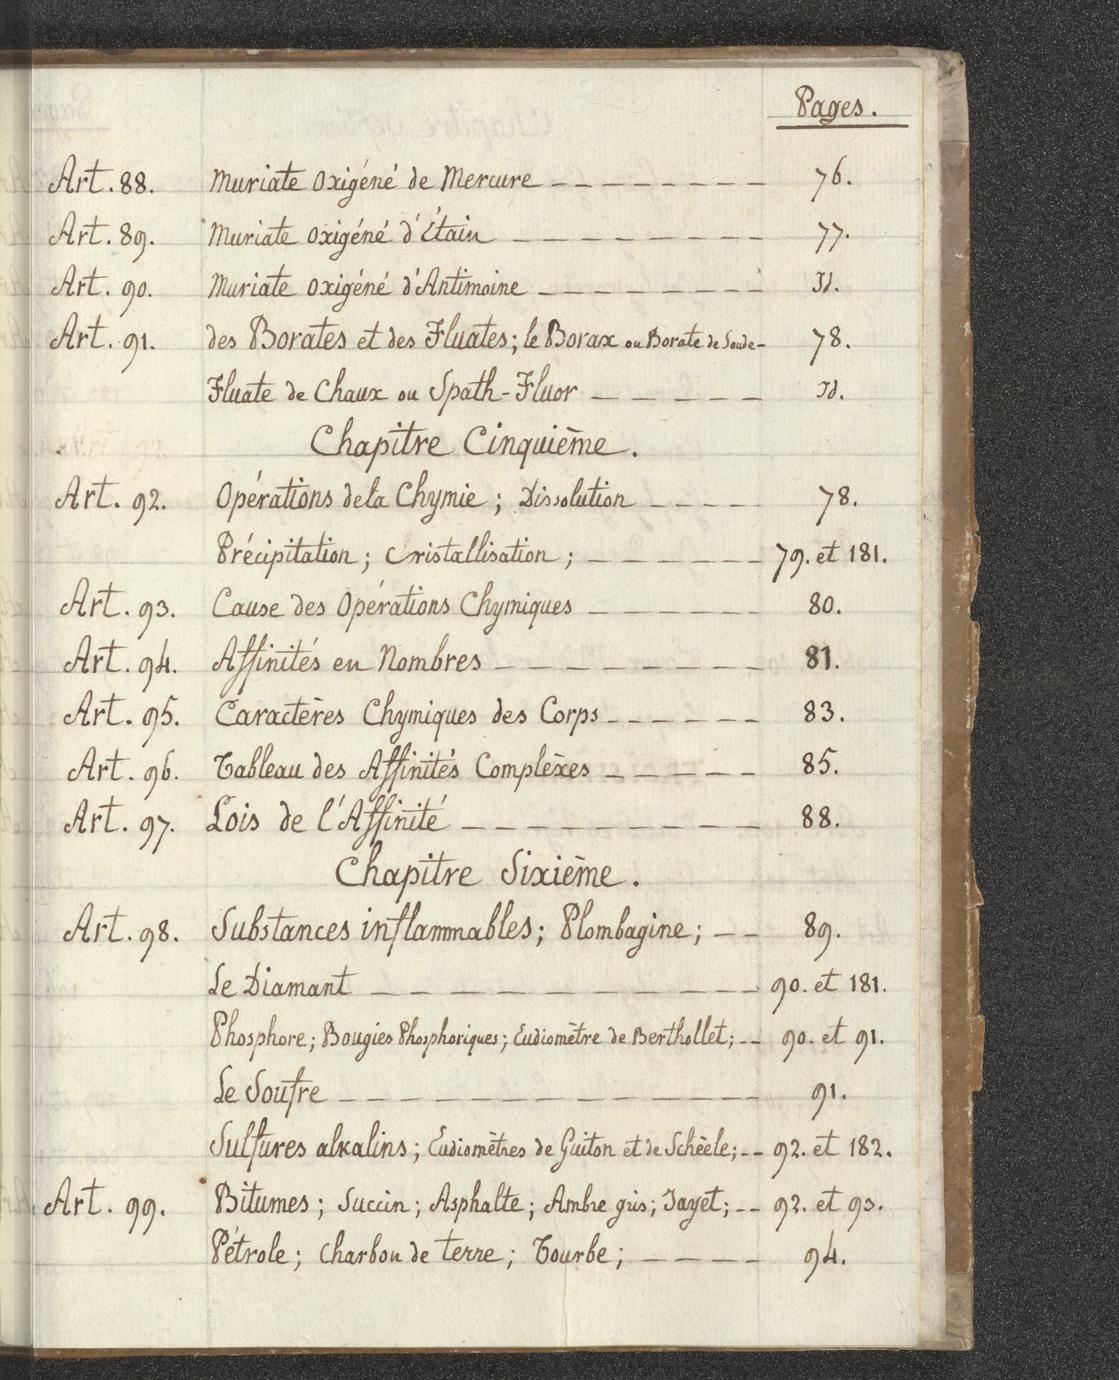 Pages.
Art. 88. Muriate Oxigéné de Mercure -------- 76.
Art. 89. Muriate oxigéné d'Étain --------- 77.
Art. 90. Muriate oxigéné d'Antimoine -------- Id.
Art. 91. des Borates et des Fluates; le Borax ou Borate de Soude- 78.
Fluate de Chaux ou Spath-Fluor ----- Id.
Chapitre Cinquième.
Art. 92. Opérations de la Chymie; Dissolution ----- 78.
Précipitation; Cristallisation; ------- 79. et 181.
Art. 93. Cause des Opérations Chymiques ------ 80.
Art. 94. Affinités en Nombres --------- 81.
Art. 95. Caractères Chymiques des Corps ------ 83.
Art. 96. Tableau des Affinités Complèxes ------ 85.
Art. 97. Lois de l'Affinité ---------- 88.
Chapitre Sixième.
Art. 98. Substances inflammables; Plombagine; -- 89.
Le Diamant ------------ 90. et 181.
Phosphore; Bougies Phosphoriques; Eudiomètre de Berthollet; -- 90. et 91.
Le Soufre ------------- 91.
Sulfures alkalins; Eudiomètres de Guiton et de Schèele; -- 92. et 182.
Art. 99. Bitumes; Succin; Asphalte; Ambre gris; Jayet; -- 92. et 93.
Pétrole; Charbon de terre; Tourbe; ----- 94.